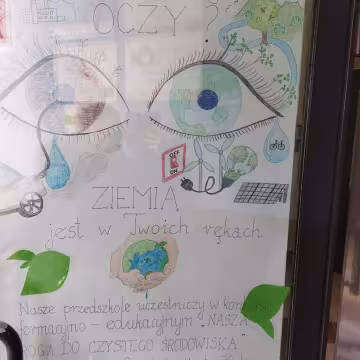 OCZY ?
OFF
ON
ZIEMIA
jest w Twoich rękach
Nasze przedszkole uczestniczy w
edukacyjnym „NASZA
DO CZYSTEGO ŚRODOWISKA